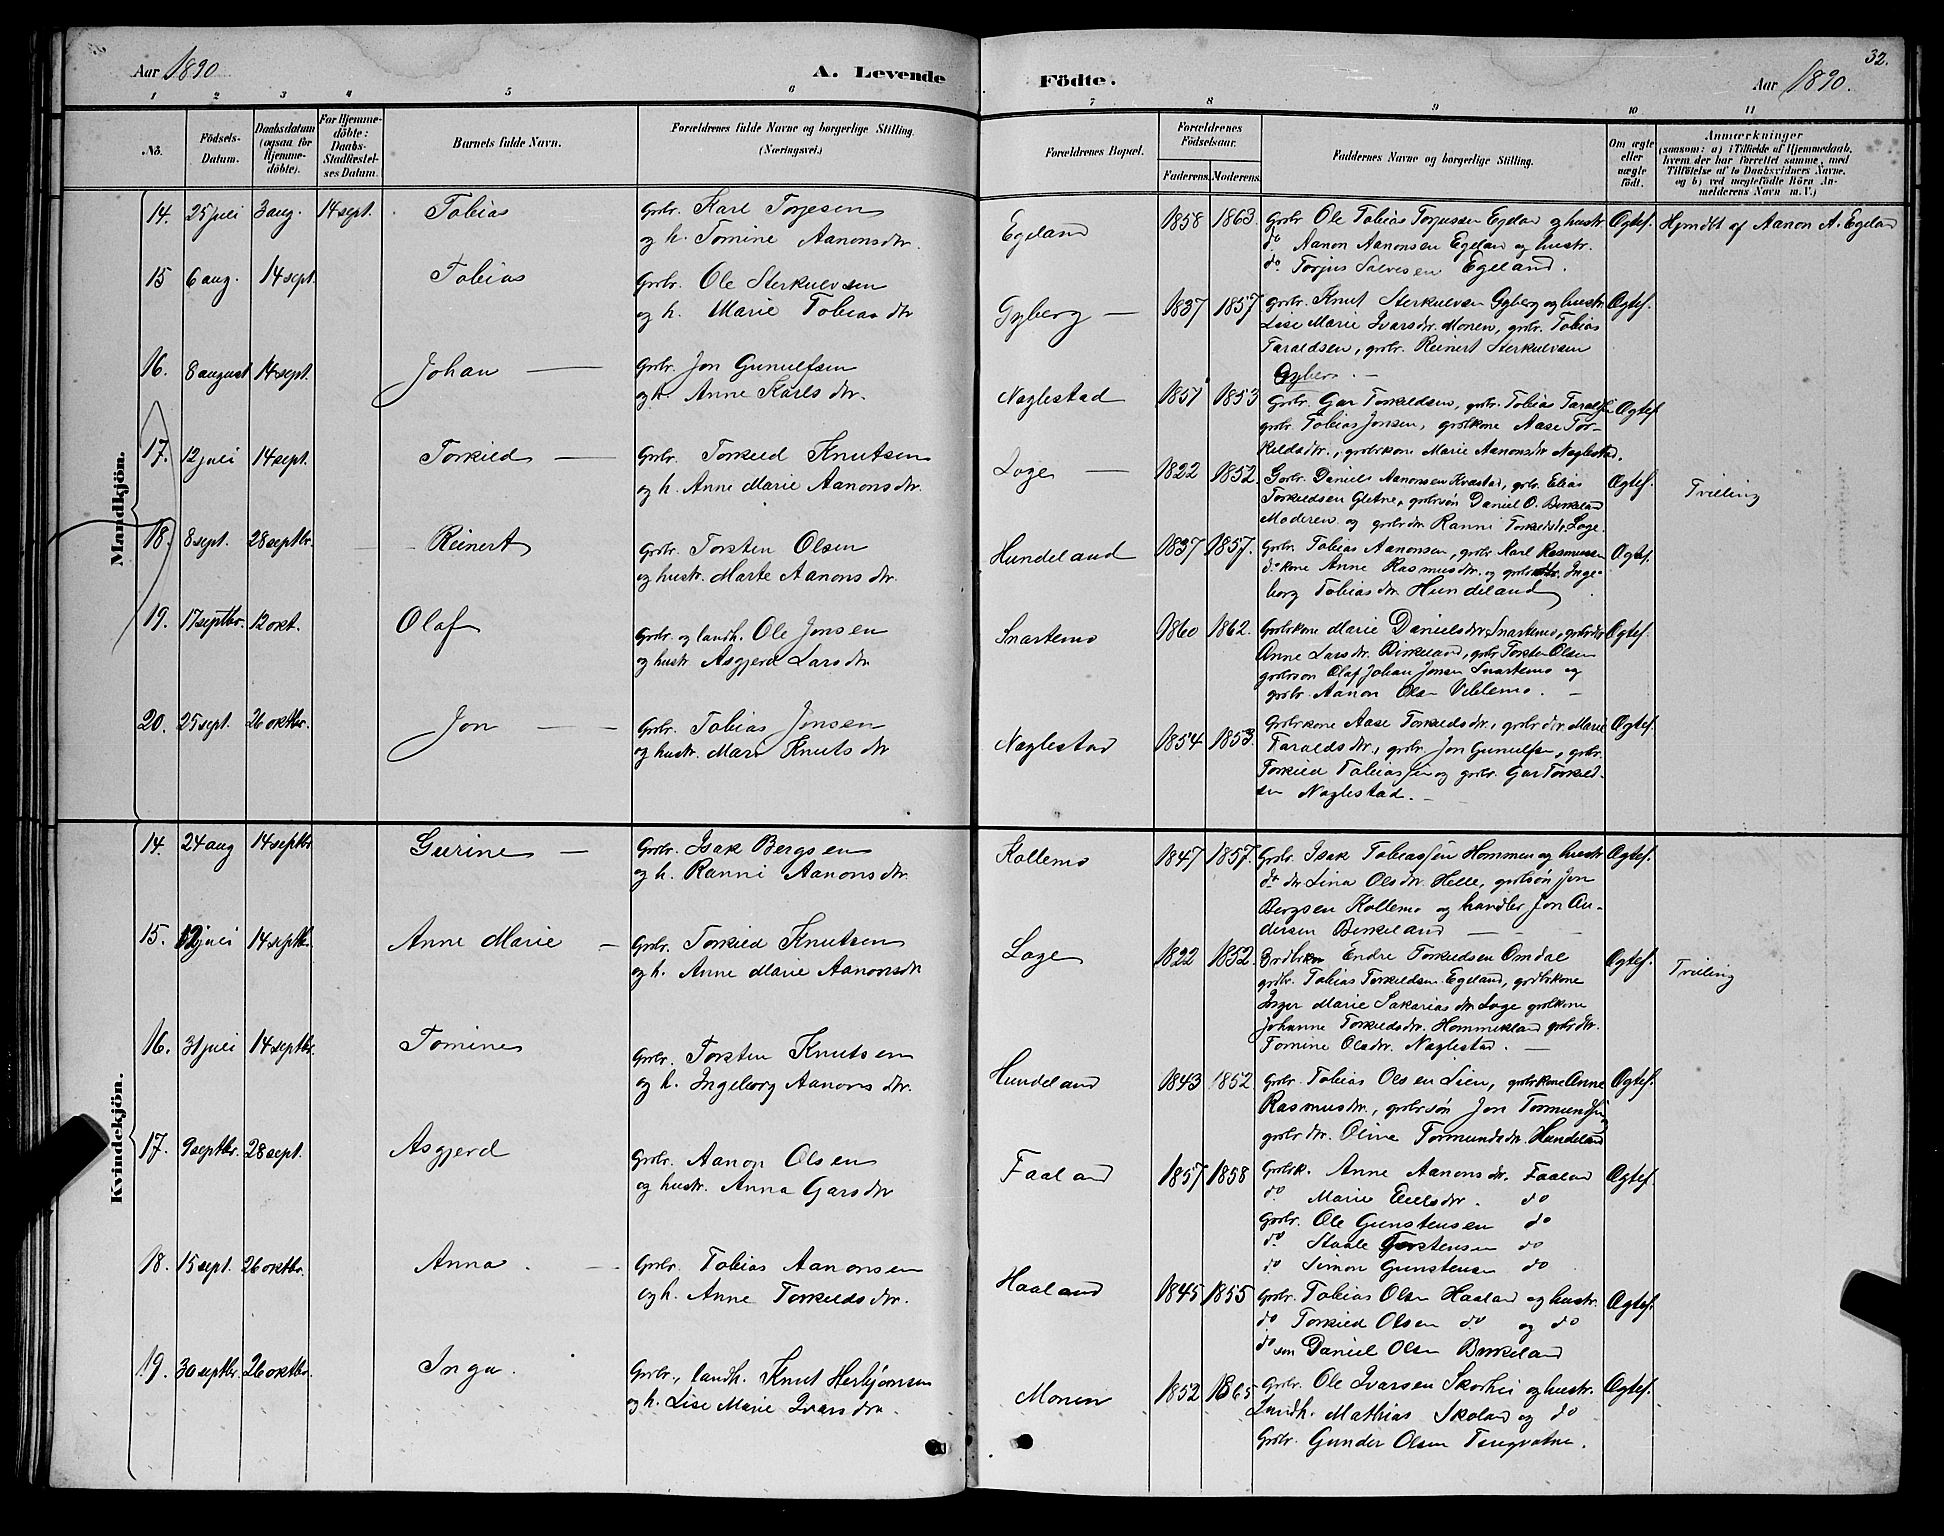 Aar 1890. A. Levende Födte. Aar 1890. 32.
1 2 3 4 5 6 7 8 9 10 11
No. Födsels-Datum. Daabsdatum (ogsaa for Hjemmedöbte). For Hjemmedöbte: Daabs-Stadfæstelses Datum. Barnets fulde Navn. Forældrenes fulde Navne og borgerlige Stilling. (Næringsvei.) Forældrenes Bopæl. Forældrenes Födselsaar. Faderens. Moderens. Faddernes Navne og borgerlige Stilling. Om ægte eller uægte födt. Anmærkninger (saasom: a) i Tilfælde af Hjemmedaab, hvem der har forrettet samme, med Tilföielse af to Daabsvidners Navne, og b) ved uægtefödte Börn Anmelderens Navn m. V.)
Mandkjön.
14. 25 juli 3 aug. 14 sept. Tobias
Grbr. Karl Torjesen
og h. Tomine Aanonsdtr.
Egeland 1858 1863.
Grbr. Ole Tobias Torjussen Egeland og hustr.
do. Aanon Aanonsen Egeland og hustr.
do. Torjus Salvesen Egeland.
Ægtef. Hjmdbt af Aanon A. Egeland
15 6 aug. 14 sept. Tobias
Grbr. Ole Sterkulvsen
og h. Marie Tobiasdtr
Gyberg — 1837 1857.
Grbr. Knut Sterkulvsen Gyberg og hustr
Lise Marie Ivarsdtr. Monen, grbr. Tobias
Taraldsen, grbr. Reinert Sterkulvsen
Gyberg. —
Ægtef.
16. 8 august 14 sept. Johan —
Grbr. Jon Gunulfsen
og h. Anne Karlsdtr.
Naglestad 1851 1853
Grbr. Gar Torkildsen, grbr. Tobias Taralds
grbr. Tobias Jonsen, grbrkone Aase Tor-
keldsdtr., grbrkone Marie Aanonsdtr Naglestad.
Ægtef
17. 12 juli 14 sept. Torkild —
Grbr. Torkild Knutsen
og h. Anne Marie Aanonsdtr.
Loge — 1822 1852.
Grbr. Daniels Aanonsen Kvastad, grbr. Elias
Torkildsen Gletne, grbrsøn Daniel O. Birkeland
Moderen og grbrdtr Ranni Torkildsdtr Loge.
Ægtef. Tvilling
18. 8 sept. 28 septbr. Reinert
Grbr. Torsten Olsen
og hustr. Marte Aanonsdtr.
Hundeland 1837 1857.
Grbr. Tobias Aanonsen, grbr. Karl Rasmussen
do kone Anne Rasmusdtr. og grbrdtr. Inge-
borg Tobiasdtr Hundeland
Ægtef.
19. 17 septbr. 12 okt. Olaf
Grbr. og landh. Ole Jonsen
og hustr Asgjerd Larsdtr
Snartemo 1860 1862.
Grbrkone Marie Danielsdtr Snartemo, grbrdtr
Anne Larsdtr. Birkeland, grbr Torsten Olsen
grbrson Olaf Johan Jonsen Snartemo og
grbr. Aanon Olsen Veblemo. —
Ægtef.
20. 25 sept. 26 oktbr. Jon —
Grbr. Tobias Jonsen
og hustr. Mari Knutsdtr
Naglestad 1854 1853.
Grbrkone Aase Torkildsdtr., grbrdtr Marie
Taraldsdtr., grbr. Jon Gunulfsen, grbr.
Torkild Tobiassen og grbr. Gar Torkild-
sen Naglestad. —
Ægtef.
Kvindekjön.
14. 24 aug 14 septbr Gurine —
Grbr. Isak Bergsen
og h. Ranni Aanonsdtr.
Kollemo 1847 1857.
Grbr. Isak Tobiassen Hommen og hustr
do dtr Lina Olsdtr. Helle, grbrsøn Jon
Bergsen Kollemo og handler Jon An-
dersen Birkeland —
Ægtef.
15. 12 juli 14 septbr. Anne Marie —
Grbr. Torkild Knutsen
og h. Anne Marie Aanonsdtr
Loge 1822 1852.
Grdbrkn Endre Torkildsen Omdal
grdbr. Tobias Torkildsen Egeland, grdbrkone
Inger Marie Sakariasdtr Loge grbrkone
Johanne Torkildsdtr. Hommekland grbrdtr.
Tomine Olsdtr. Naglestad. —
Ægtef. Tvilling
16. 31 juli 14 septbr. Tomine
Grbr. Torsten Knutsen
og h. Ingeborg Aanonsdtr.
Hundeland 1843 1852
Grbr. Tobias Olsen Lien, grbrkone Anne
Rasmusdtr., grbrsøn Jon Tormundsen
grbrdtr. Oline Tormundsdtr. Hundeland
Ægtef.
17. 9 septbr. 28 sept. Asgjerd
Grbr. Aanon Olsen
og hustr. Anna Garsdtr
Faaland 1857 1858
Grbrk. Anne Aanonsdtr. Faaland
do Marie Eielsdtr. do
Grbr. Ole Gunstensen do
do Staale Torstensen do
do Simon Gunstensen do
Ægtef.
18. 15 sept. 26 oktbr. Anna. —
Grbr. Tobias Aanonsen
og h. Anne Torkeldsdtr.
Haaland 1845 1855
Grbr. Tobias Olsen Haaland og hustr.
do Torkild Olsen do og do
do søn Daniel Olsen Birkeland
Ægtef.
19. 30 septbr. 26 oktbr. Inga.
Grbr., landh. Knut Herbjørnsen
og h. Lise Marie Ivarsdtr.
Monen 1852 1865
Grbr. Ole Ivarsen Skorhei og hustr.
Landh. Mathias Skoland og do
Grbr. Gunder Olsen Tingvatne.
Ægtef.